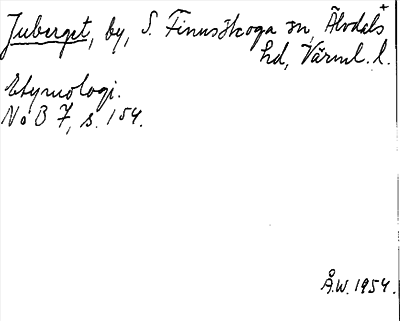 Juberget, by, S. Finnskoga sn, Älvdals
hd, Värml. l.
Etymologi.
NoB 7, s. 154.
Å.W. 1954.